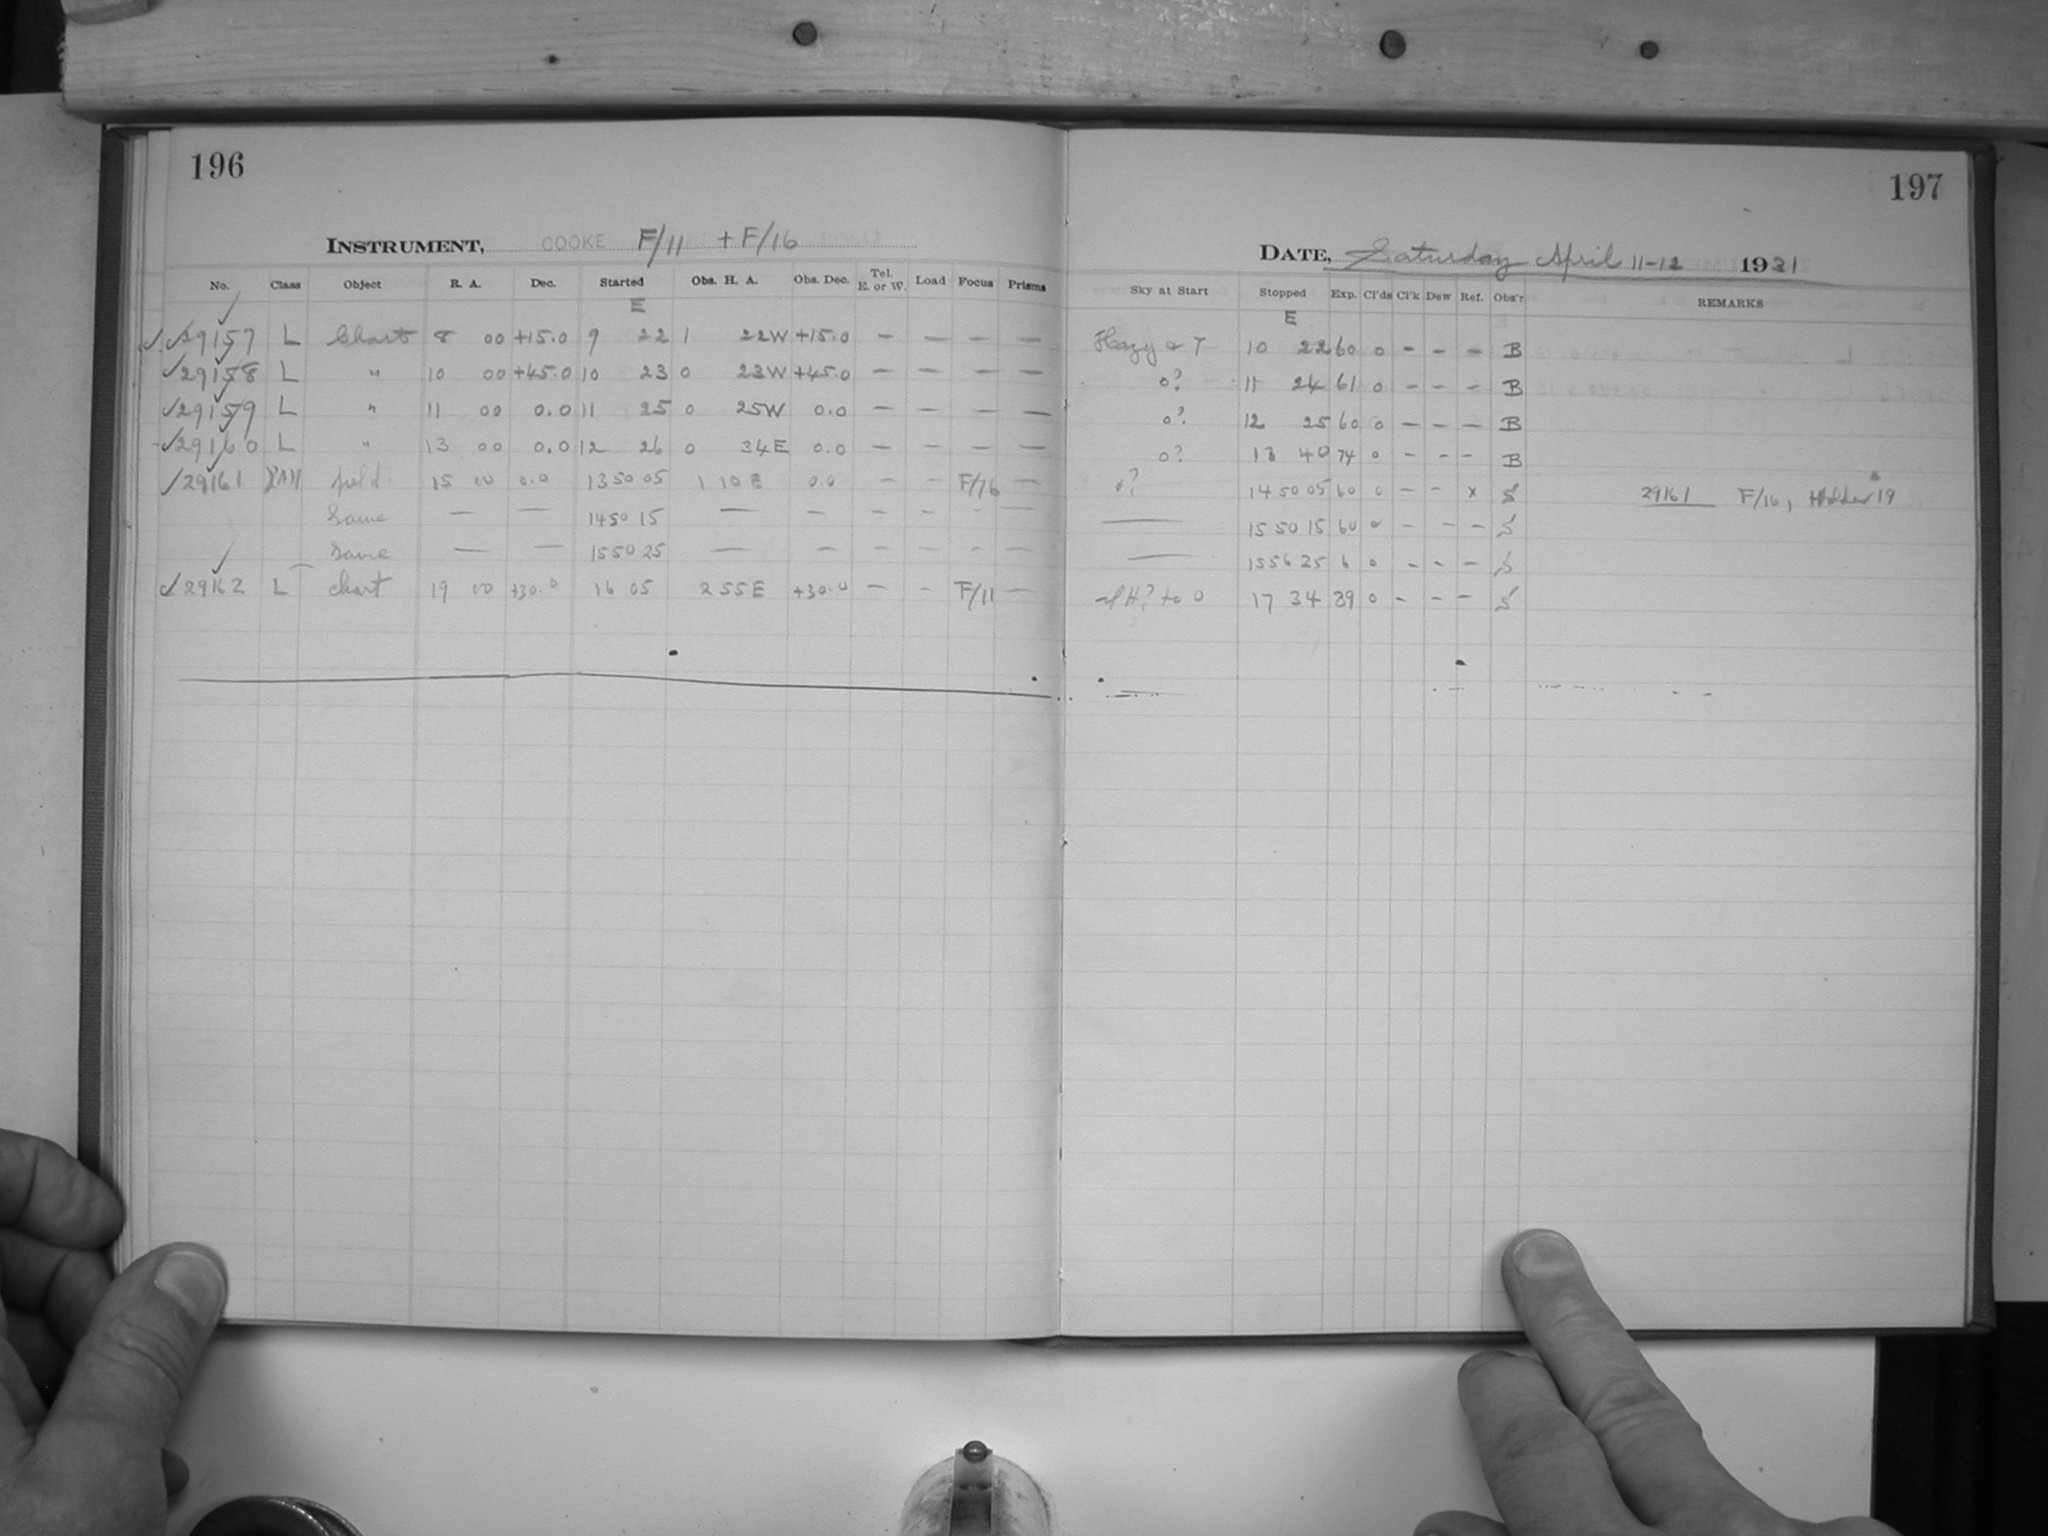 196
INSTRUMENT, COOKE F/11 + F/16
No. Class Object R. A. Dec. Started Obs. H. A. Obs. Dec. Tel. E. or W. Load Focus Prisms
E
✓29157 L Chart 8 00 +15.0 9 22 1 22W +15.0 — — — —
✓29158 L " 10 00 +45.0 10 23 0 23W +45.0 — — — —
✓29159 L " 11 00 0.0 11 25 0 25W 0.0 — — — —
✓29160 L " 13 00 0.0 12 26 0 34E 0.0 — — — —
✓29161 field 15 00 0.0 13 50 05 1 10 E 0.0 — — F/16 —
Same — — 14 50 15 — — — — — —
Same — — 15 50 25 — — — — — —
✓29162 L chart 19 00 +30.0 16 05 2 55 E +30.0 — — F/11 —
197
DATE, Saturday April 11-12 1931
Sky at Start Stopped Exp. Cl'ds Cl'k Dew Ref. Obs'r REMARKS
E
Hazy 10 22 60 0 — — — B
0? 11 24 61 0 — — — B
0? 12 25 60 0 — — — B
0? 13 40 74 0 — — — B
0? 14 50 05 60 0 — — x S 29161 F/16, Holder 19
— 15 50 15 60 0 — — — S
— 15 56 25 6 0 — — — S
H? to 0 17 34 89 0 — — — S